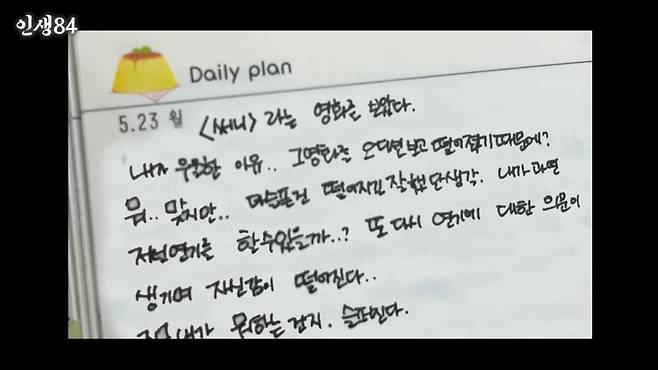 인생84
Daily plan
5.23 월 <써니> 라는 영화를 보았다.
내가 우울한 이유.. 그영화를 오디션보고 떨어졌기 때문에?
뭐.. 맞지만.. 더슬픈건 떨어지길 잘했단생각. 내가과연
저런연기를 할수있을까..? 또 다시 연기에 대한 의문이
생기며 자신감이 떨어진다..
내가 뭐하는 건지. 슬퍼진다.